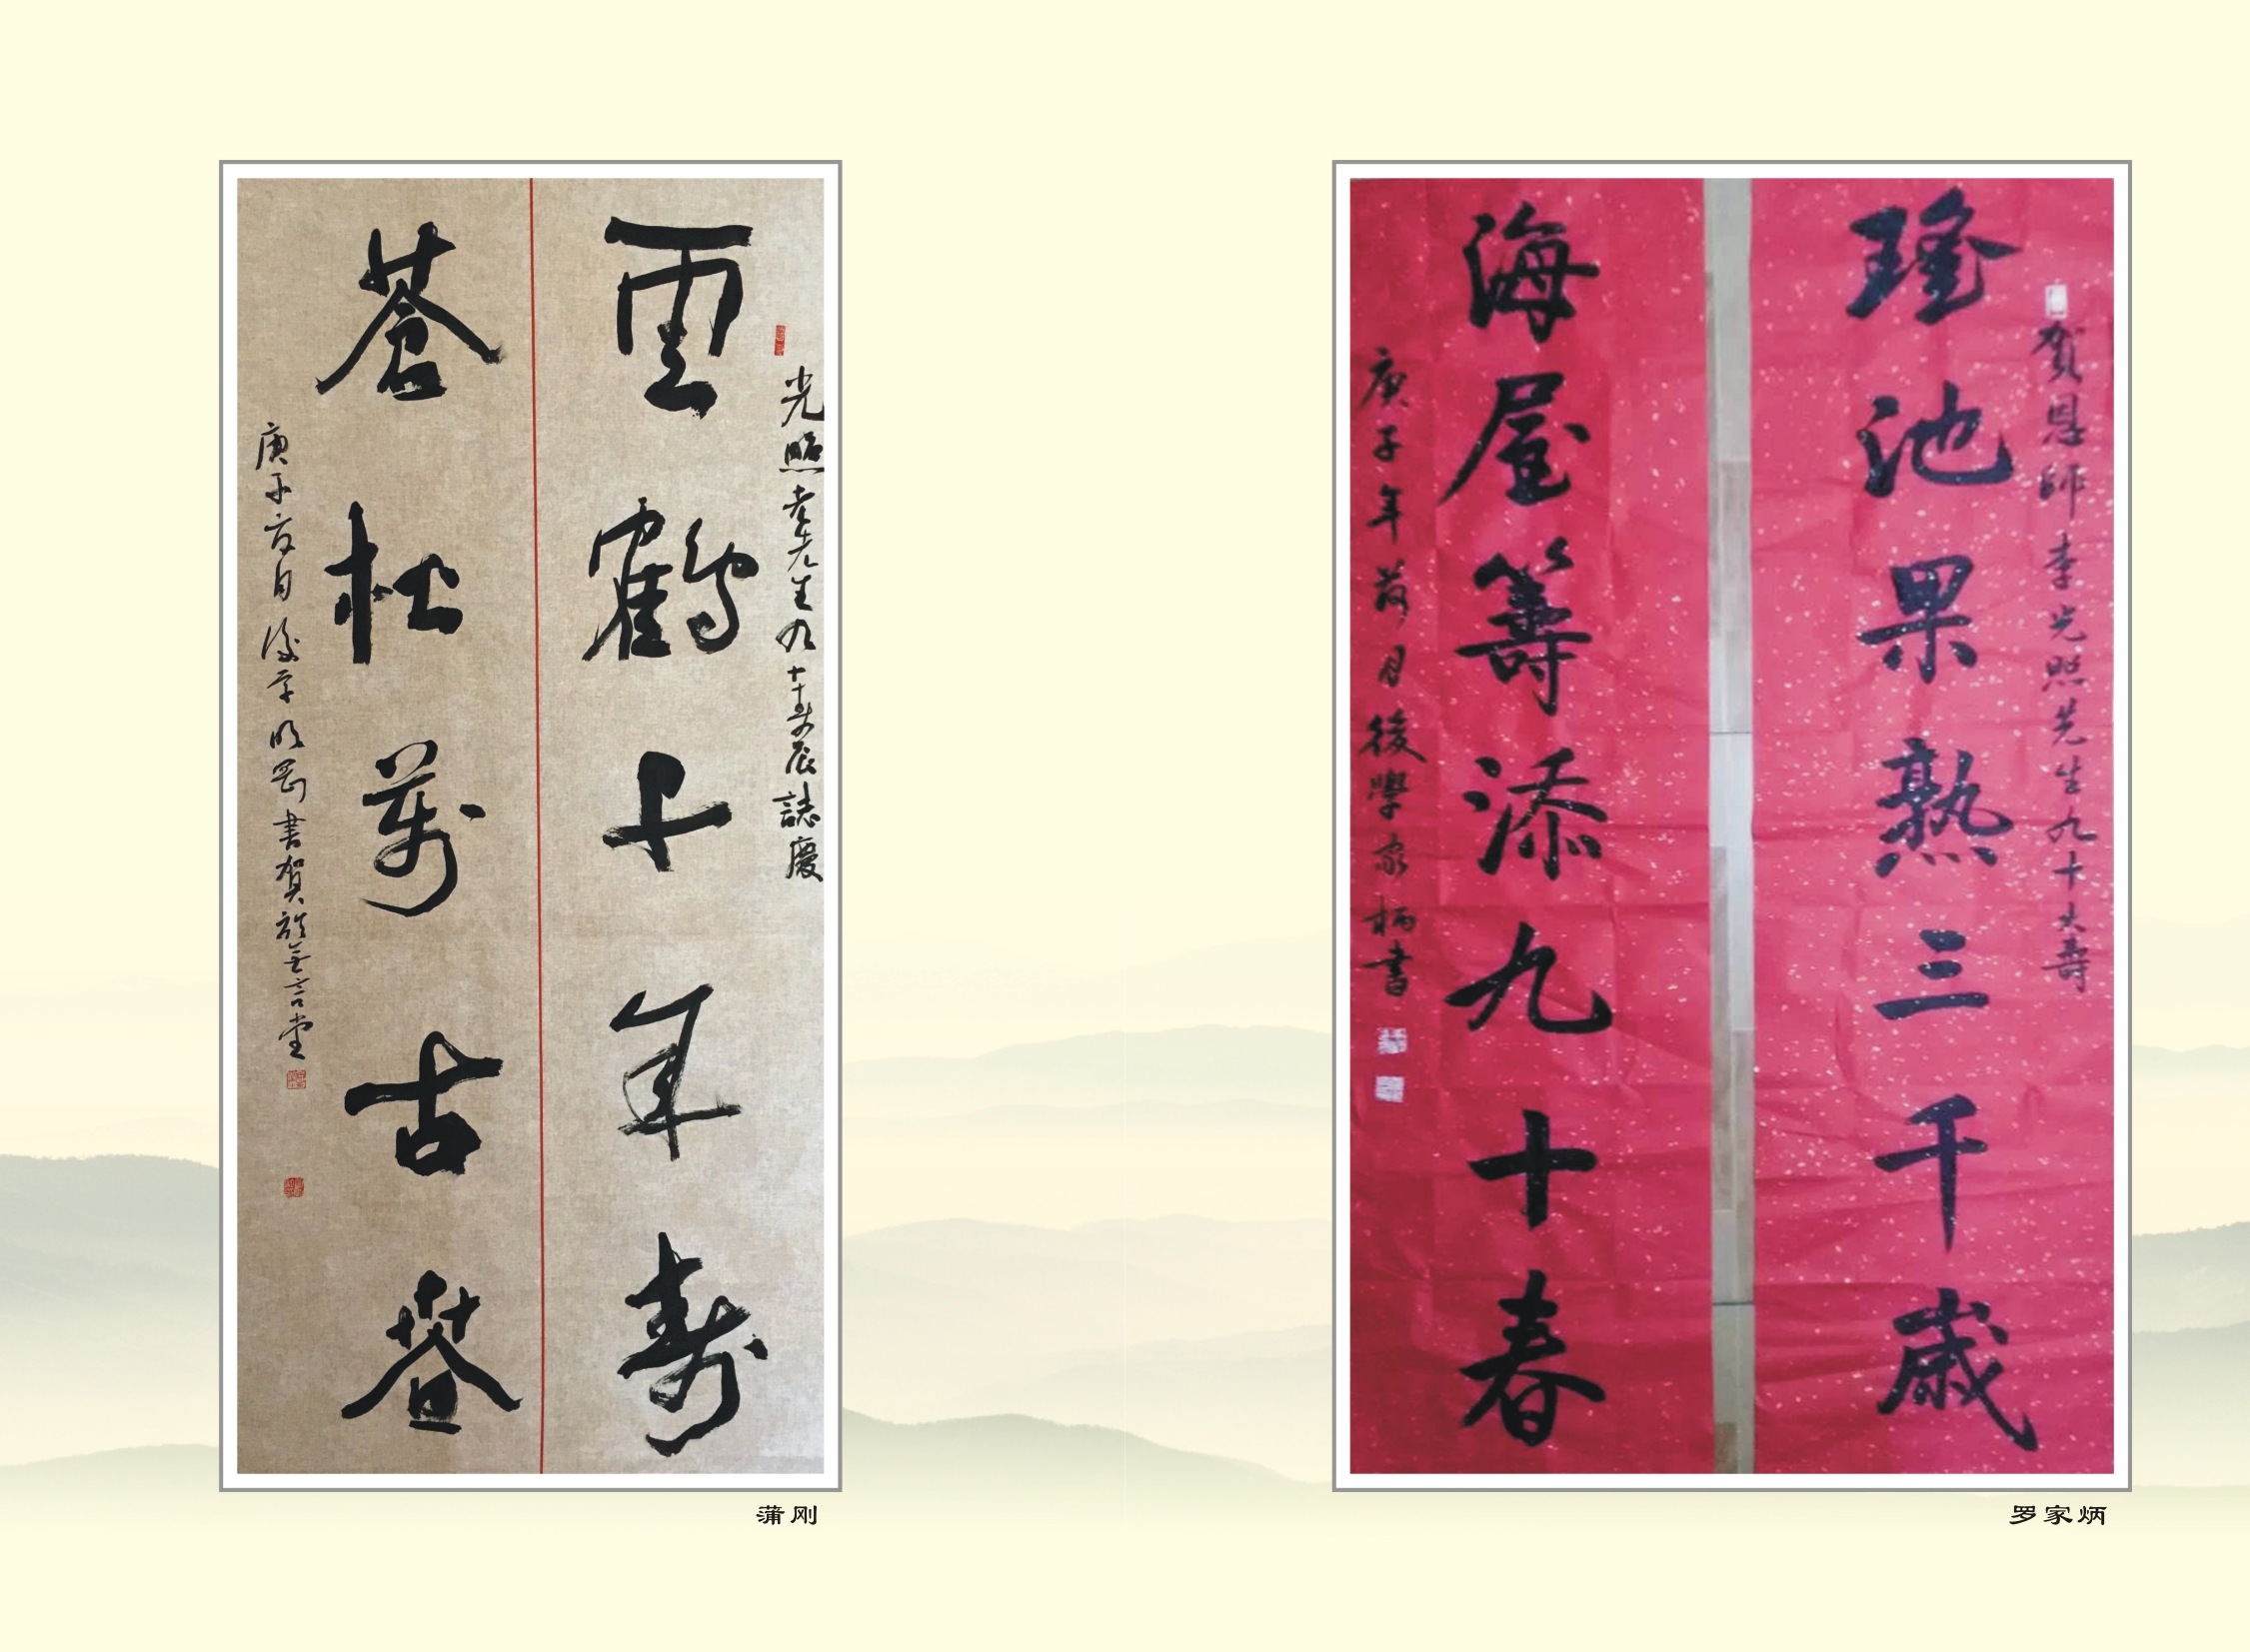 光照老先生九十壽辰誌慶
雲鶴千年壽
蒼松萬古春
庚子夏月後学明剛書賀於無言堂
蒲刚
賀恩師李光照先生九十大壽
瑤池果熟三千歲
海屋籌添九十春
庚子年荷月後學家炳書
罗家炳